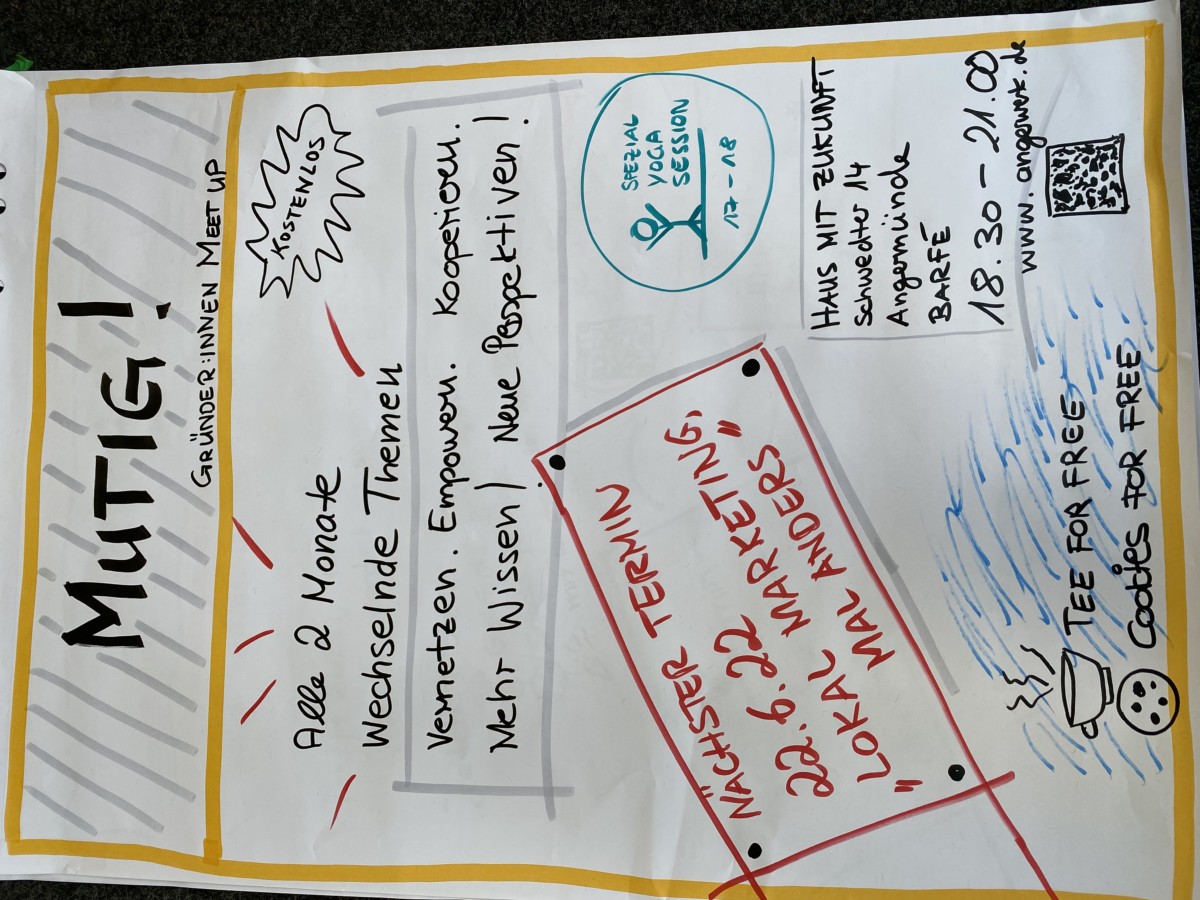 MUTIG!
GRÜNDER:INNEN MEET UP
KOSTENLOS
Alle 2 Monate
Wechselnde Themen
Vernetzen. Empowern. Kooperieren.
Mehr Wissen / Neue Perspektiven!
SPEZIAL
YOGA
SESSION
17-18
NÄCHSTER TERMIN
22.6.22
"LOKAL MARKETING,
MAL ANDERS"
HAUS MIT ZUKUNFT
Schwedter 14
Angermünde
BARFE
18.30 - 21.00
www.angerwerk.de
TEE FOR FREE
Cookies FOR FREE